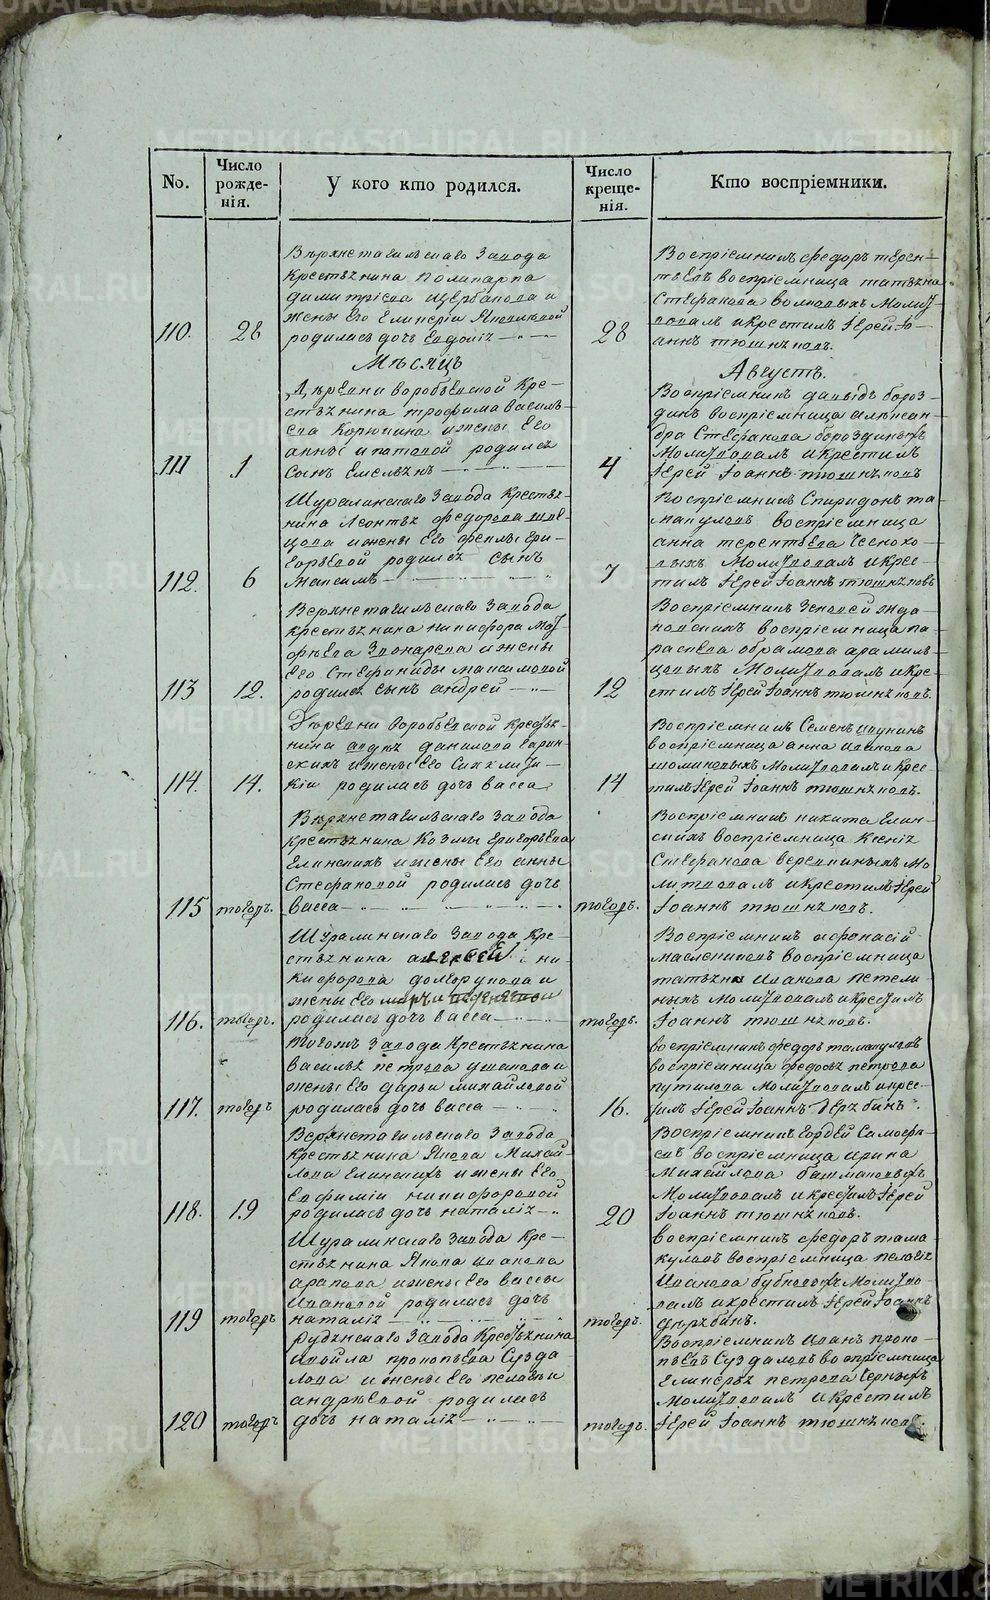 No.
Число рожде-нія.
У кого кто родился.
Число креще-нія.
Кто воспріемники.
110.
28
Верхнетагильскаго Завода
крестьянина Поликарпа
димитріева щербакова и
жены Его Еликеріи Яковлевой
родилась дочь Евдокія
28
Воспріемникъ федоръ терен-
тьевъ воспріемница татьяна
Стефанова Молит-
вовалъ и крестилъ Іерей Іо-
аннъ тюшняковъ.
Мѣсяцъ
Августъ.
111
1
Деревни воробьевской кре-
стьянина трофима василь-
ева Корюкина и жены Его
анны ипатовой родился
сынъ Емельянъ
4
Воспріемникъ давыдъ бороз-
динъ воспріемница алексан-
дра Стефанова бороздиныхъ
Молитвовалъ и крестилъ
Іерей Іоаннъ тюшняковъ
112.
6
Шуралинскаго Завода крестья-
нина Леонтья федорова шве-
цова и жены Его феклы гри-
горьевой родился сынъ
Максимъ
7
Воспріемникъ Спиридонъ та-
макуловъ воспріемница
анна терентьева Чесноко-
выхъ Молитвовалъ и крес-
тилъ Іерей Іоаннъ тюшняковъ
113
12.
Верхнетагильскаго Завода
крестьянина никифора
Звонарева и жены
его Стефаниды максимовой
родился сынъ андрей
12
Воспріемникъ
воспріемница па-
расковья абрамова арамиль-
цовыхъ Молитвовалъ и кре-
стилъ Іерей Іоаннъ тюшняковъ.
114.
14.
Деревни воробьевской крестья-
нина данилова гарин-
скихъ и жены Его Синклити-
кіи родилась дочь васса
14
Воспріемникъ Семенъ
воспріемница анна иванова
Молитвовалъ и крес-
тилъ Іерей Іоаннъ тюшняковъ.
115
тогожъ.
Верхнетагильскаго Завода
крестьянина Козмы григорьева
Елинскихъ и жены Его анны
Стефановой родилась дочь
васса
тогожъ.
Воспріемникъ никита Елин-
скихъ воспріемница Ксенія
Стефанова Мо-
литвовалъ и крестилъ Іерей
Іоаннъ тюшняковъ.
116.
тогожъ.
Шуралинскаго Завода кре-
стьянина алексея ни-
кифорова долгорукова и
жены его
родилась дочь васса
тогожъ.
Воспріемникъ афонасій
масленниковъ воспріемница
татьяна иванова петели-
ныхъ Молитвовалъ и крестилъ
Іоаннъ тюшняковъ.
117.
тогожъ
тогожъ Завода Крестьянина
василья петрова ушакова и
жены Его дарьи михайловой
родилась дочь васса
16.
воспріемникъ федоръ тамакуловъ
воспріемница федосья петрова
путилова Молитвовалъ и крес-
тилъ Іерей Іоаннъ дерябинъ.
118.
19
Верхнетагильскаго Завода
крестьянина Якова Михай-
лова Елинскихъ и жены Его
Евфиміи никифоровой
родилась дочь наталія
20
Воспріемникъ гордей
воспріемница ирина
Михайлова башмаковыхъ
Молитвовалъ и крестилъ Іерей
Іоаннъ тюшняковъ.
119
тогожъ
Шуралинскаго Завода кре-
стьянина Якова иванова
арапова и жены Его вассы
ивановой родилась дочь
наталія
тогожъ.
воспріемникъ федоръ тама-
куловъ воспріемница пелагія
иванова бубновыхъ Молитво-
валъ и крестилъ Іерей Іоаннъ
дерябинъ.
120
тогожъ
рудянскаго Завода Крестьянина
прокопьева Сузда-
лова и жены Его пелагеи
андреевой родилась
дочь наталія
тогожъ.
Воспріемникъ иванъ проко-
пьевъ Суздаловъ воспріемница
петрова Черныхъ
Молитвовалъ и крестилъ
Іерей Іоаннъ тюшняковъ.
METRIKI.GASO-URAL.RU